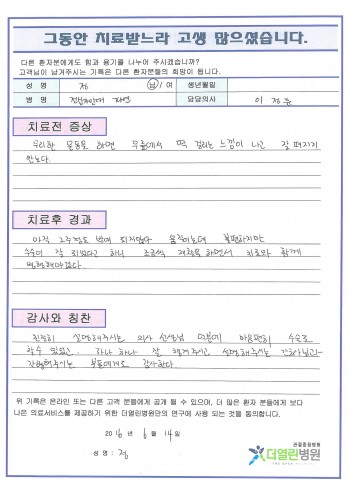 그동안 치료받느라 고생 많으셨습니다.
다른 환자분에게도 힘과 용기를 나누어 주시겠습니까?
고객님이 남겨주시는 기록은 다른 환자분들의 희망이 됩니다.
성 명 정 남 / 여 생년월일
병 명 전방십자인대 파열 담당의사 이
치료전 증상
무리한 운동을 하면 무릎에서 뚝 걸리는 느낌이 나고 잘 펴지지
않는다.
치료후 경과
아직 2주정도 밖에 되지않아 움직이는데 불편하지만
수술이 잘 되었다고 하니 조금씩 재활을 하면서 치료와 함께
병행해야겠다.
감사와 칭찬
친절히 설명해주시는 의사 선생님 덕분에 마음편히 수술을
할수 있었고. 하나 하나 잘 챙겨주시고 설명해주시는 간호사님과
간병해주시는 분들에게도 감사한다.
위 기록은 온라인 또는 다른 고객 분들에게 공개 될 수 있으며, 더 많은 환자 분들에게 보다
나은 의료서비스를 제공하기 위한 더열린병원만의 연구에 사용 되는 것을 동의합니다.
2016년 6월 14일
성 명 : 정
관절중점병원
더열린병원